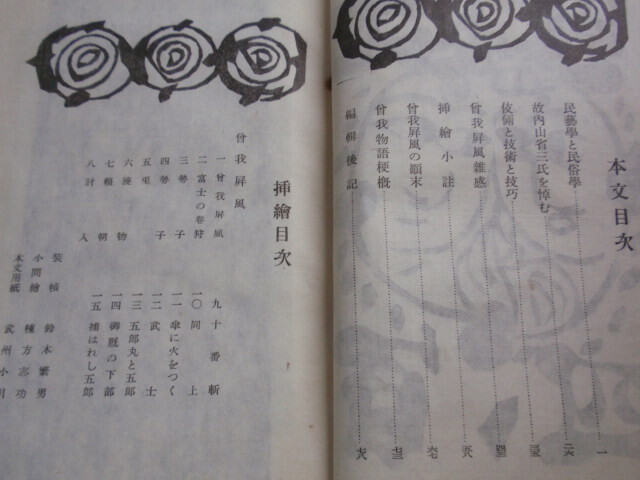 本文目次
民藝學と民俗學 一
故內山省三氏を悼む
伎倆と技術と技巧
曾我屏風雜感
揷繪小註
曾我屏風の顚末
曾我物語梗槪
編輯後記
揷繪目次
曾我屏風
一 曾我屏風
二 富士の卷狩
三 勢子
四 勢子
五 兎
六 獲物
七 賴朝
八 討入
九 十番斬
一〇 同上
一一 傘に火をつく
一二 武士
一三 五郎丸と五郎
一四 御厩の下部
一五 捕はれし五郎
裝幀 鈴木繁男
小間繪 棟方志功
本文用紙 武州小川